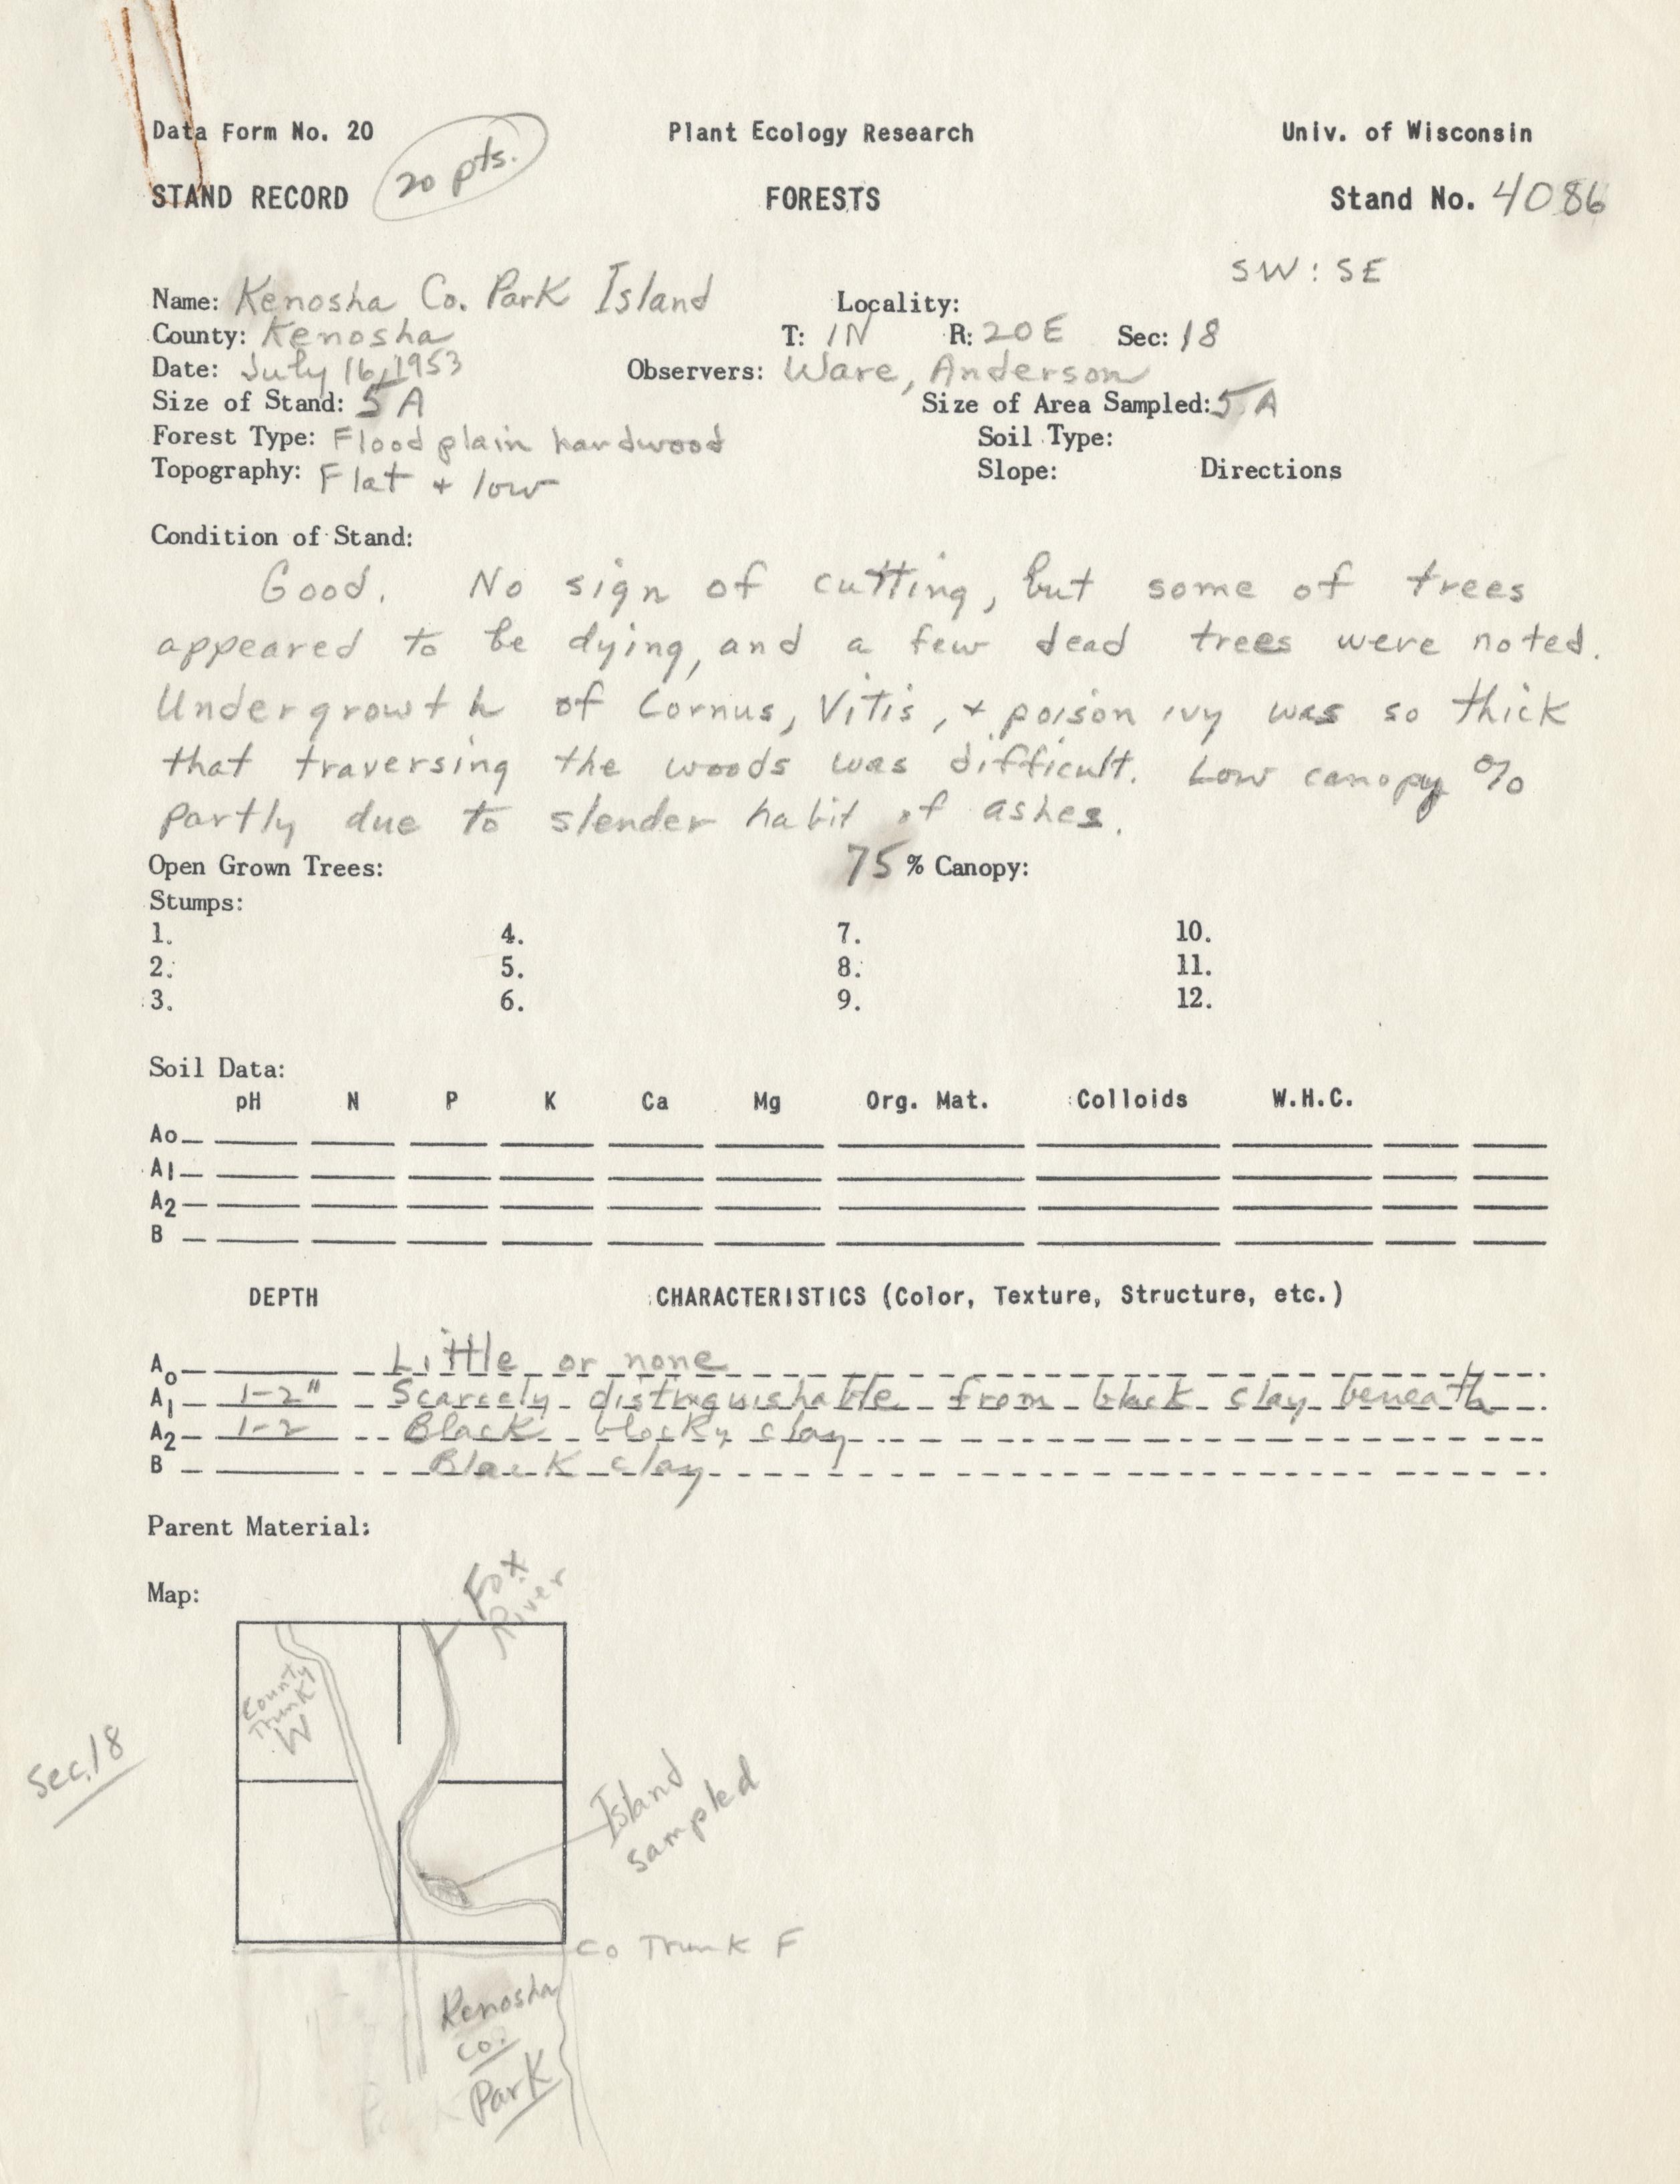 Data Form No. 20 Plant Ecology Research Univ. of Wisconsin
20 pts.
STAND RECORD FORESTS Stand No. 4086
SW : SE
Name: Kenosha Co. Park Island Locality:
County: Kenosha T: 1N R: 20E Sec: 18
Date: July 16, 1953 Observers: Ware, Anderson
Size of Stand: 5 A Size of Area Sampled: 5 A
Forest Type: Flood plain hardwood Soil Type:
Topography: Flat + low Slope: Directions
Condition of Stand:
Good. No sign of cutting, but some of trees
appeared to be dying, and a few dead trees were noted.
Undergrowth of Cornus, Vitis, + poison ivy was so thick
that traversing the woods was difficult. Low canopy %
partly due to slender habit of ashes.
Open Grown Trees: 75 % Canopy:
Stumps:
1. 4. 7. 10.
2. 5. 8. 11.
3. 6. 9. 12.
Soil Data:
pH N P K Ca Mg Org. Mat. Colloids W.H.C.
Ao
A1
A2
B
DEPTH CHARACTERISTICS (Color, Texture, Structure, etc.)
Ao Little or none
A1 1-2" Scarcely distinguishable from black clay beneath
A2 1-2 Black blocky clay
B Black clay
Parent Material:
Map:
Fox
River
County
Trunk
W
Sec. 18
Island
sampled
Co Trunk F
Kenosha
Co.
Park